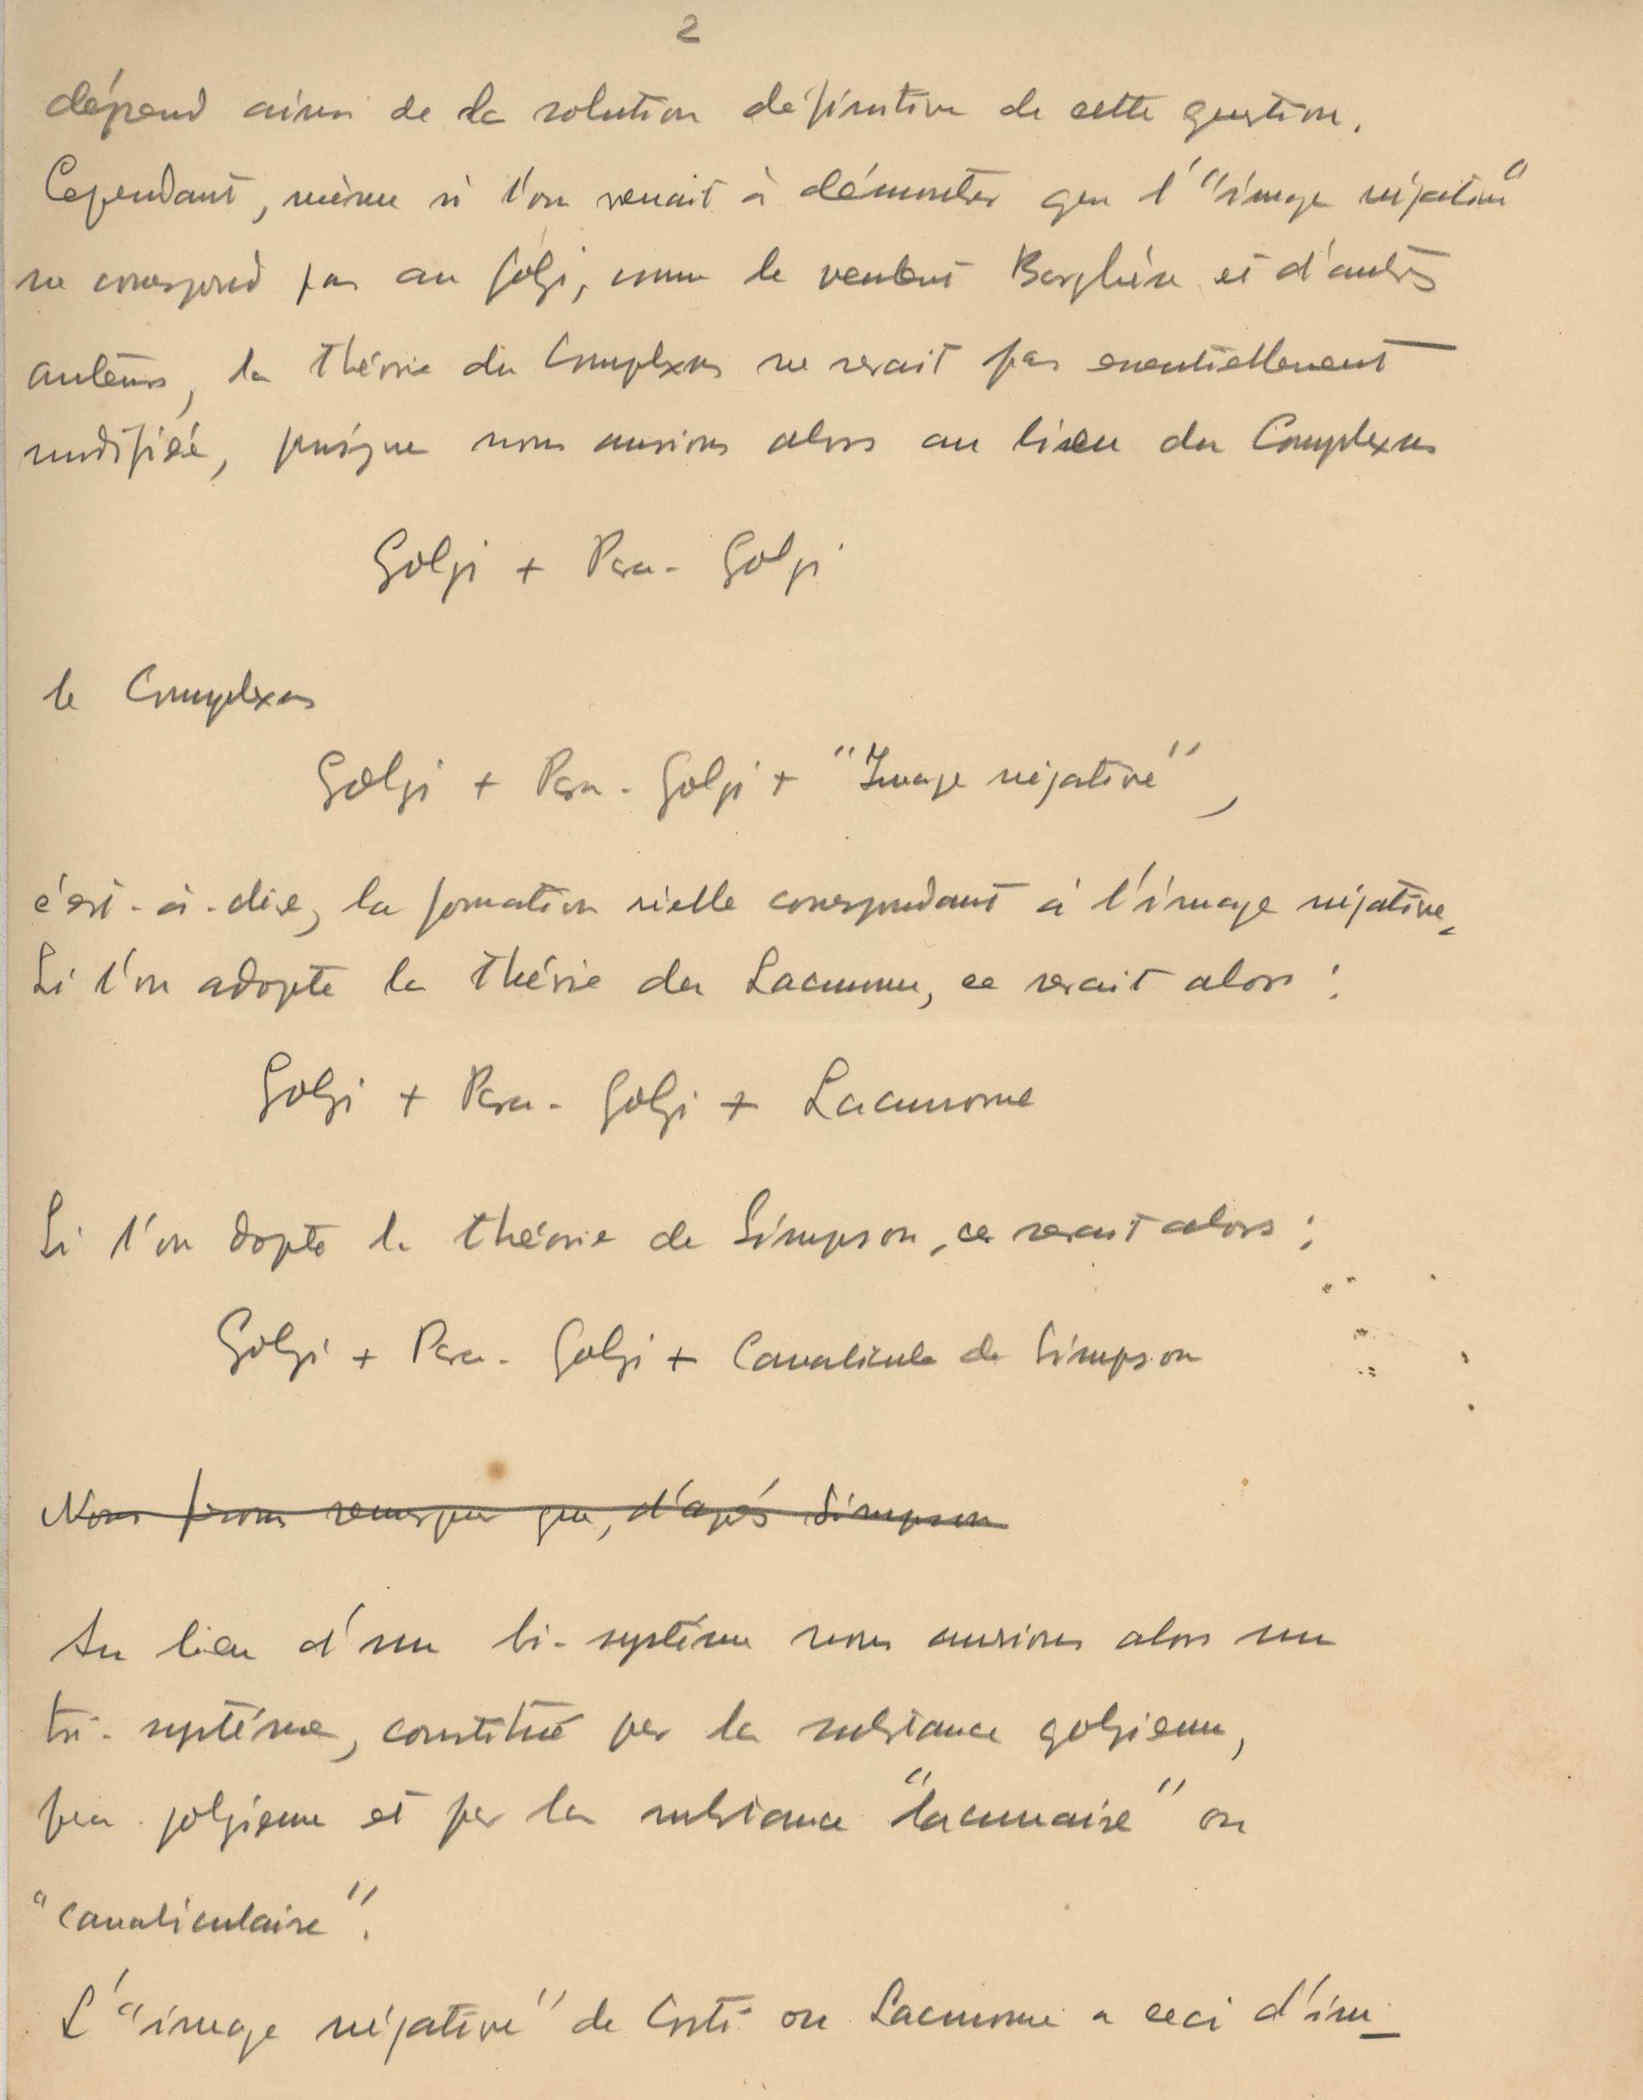 2
dépend ainsi de la solution définitive de cette question.
Cependant, même si l'on venait à démontrer que l'"image négative"
ne correspond pas au Golgi, comme le veulent et d'autres
auteurs, la théorie du Complexus ne serait pas essentiellement
modifiée, puisque nous aurions alors au lieu du Complexus
Golgi + Para-Golgi
le Complexus
Golgi + Para-Golgi + "Image négative",
c'est-à-dire, la formation réelle correspondant à l'image négative.
Si l'on adopte la théorie du Lacunome, ce serait alors :
Golgi + Para-Golgi + Lacunome
Si l'on dopte la théorie de Simpson, ce serait alors :
Golgi + Para-Golgi + Canalicule de Simpson
Nous ferons remarquer que, d'après Simpson
Au lieu d'un bi-système nous aurions alors un
tri-système, constitué par la substance golgienne,
para-golgienne et par la substance "lacunaire" ou
"canaliculaire".
L'"image négative" de Corti ou Lacunome a ceci d'im-